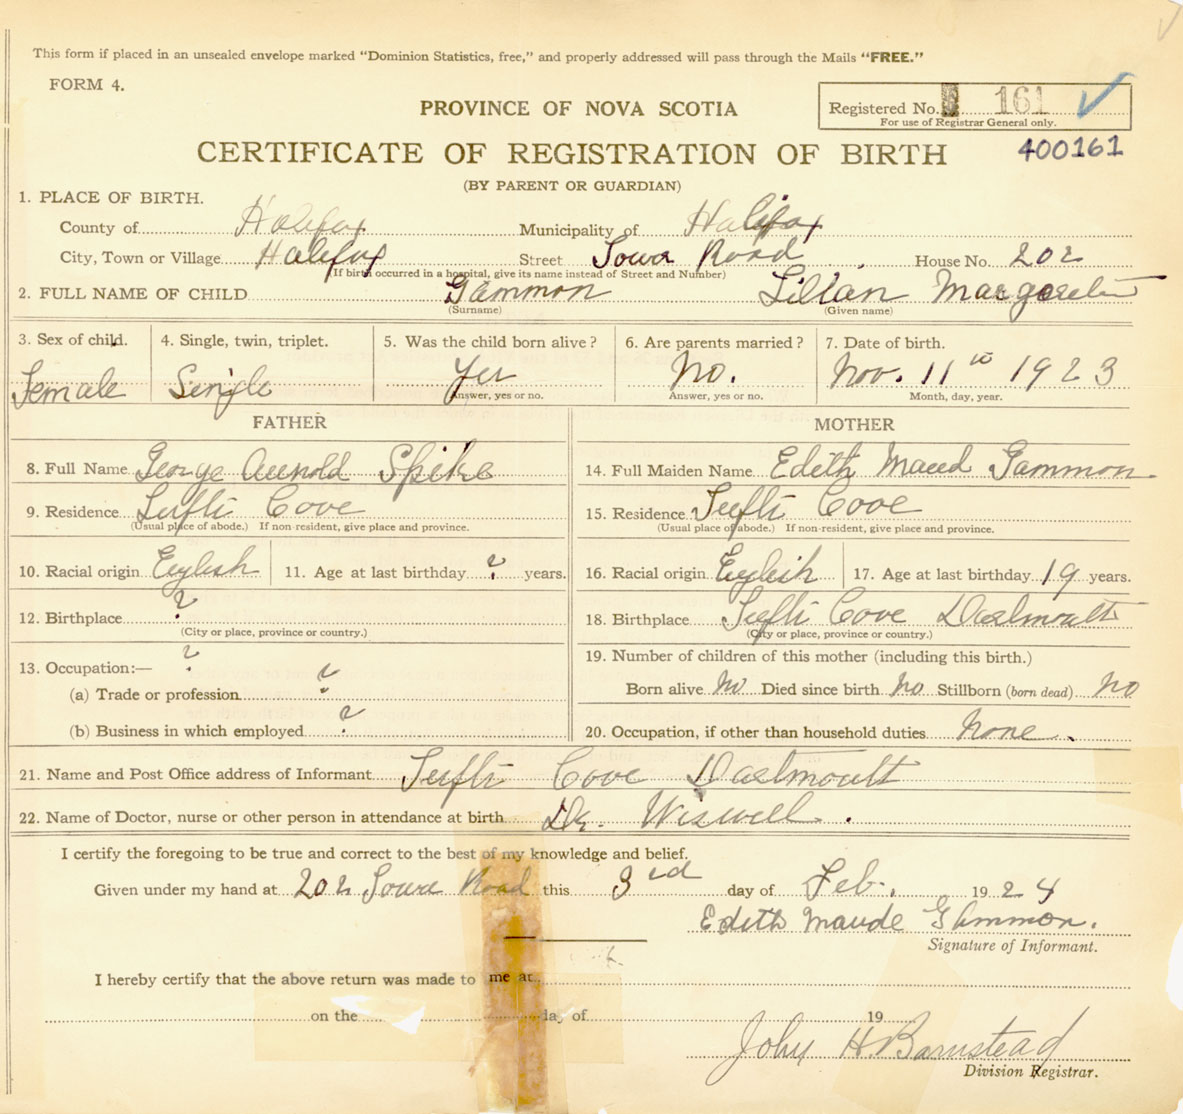 This form if placed in an unsealed envelope marked "Dominion Statistics, free," and properly addressed will pass through the Mails "FREE."
FORM 4.
PROVINCE OF NOVA SCOTIA
Registered No. 161
For use of Registrar General only.
CERTIFICATE OF REGISTRATION OF BIRTH
400161
(BY PARENT OR GUARDIAN)
1. PLACE OF BIRTH.
County of Halifax Municipality of Halifax
City, Town or Village Halifax Street Road House No. 202
If birth occurred in a hospital, give its name instead of Street and Number)
2. FULL NAME OF CHILD Gammon Lilian
(Surname) (Given name)
3. Sex of child. 4. Single, twin, triplet. 5. Was the child born alive? 6. Are parents married? 7. Date of birth.
Female Single Yes No. Nov. 11th 1923
Answer, yes or no. Answer, yes or no. Month, day, year.
FATHER MOTHER
8. Full Name George Arnold Spike 14. Full Maiden Name Edith Maud Gammon
9. Residence Cove 15. Residence Cove
(Usual place of abode.) If non-resident, give place and province. (Usual place of abode.) If non-resident, give place and province.
10. Racial origin English 11. Age at last birthday ? years. 16. Racial origin English 17. Age at last birthday 19 years.
12. Birthplace ? 18. Birthplace Cove Dartmouth
(City or place, province or country.) (City or place, province or country.)
13. Occupation:— ? 19. Number of children of this mother (including this birth.)
(a) Trade or profession ? Born alive No Died since birth No Stillborn (born dead) No
(b) Business in which employed ? 20. Occupation, if other than household duties None.
21. Name and Post Office address of Informant Cove Dartmouth
22. Name of Doctor, nurse or other person in attendance at birth Dr. Wiswell.
I certify the foregoing to be true and correct to the best of my knowledge and belief.
Given under my hand at 202 Road this 3rd day of Feb. 1924
Edith Maude Gammon.
Signature of Informant.
I hereby certify that the above return was made to me at
on the day of 19
John H. Barnstead
Division Registrar.